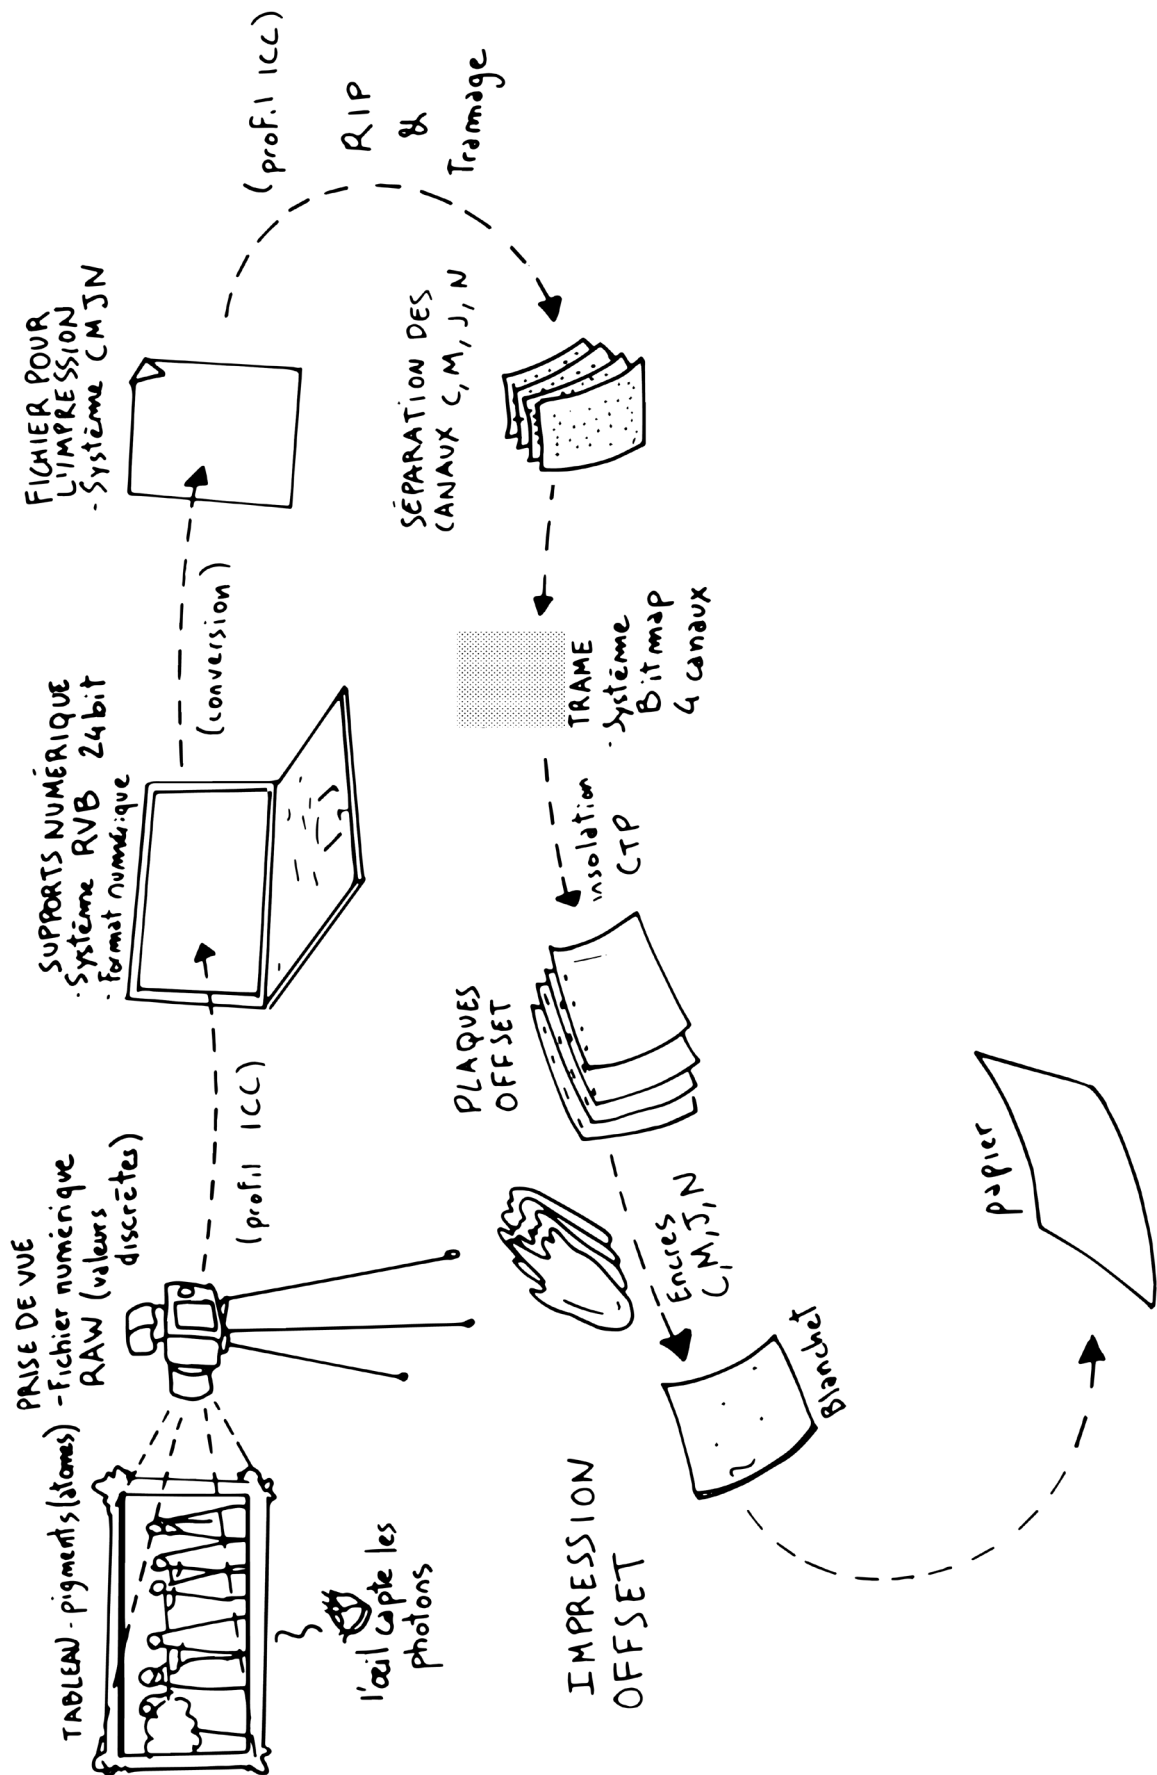 TABLEAU - pigments (atomes)
l'œil capte les
photons
PRISE DE VUE
- Fichier numérique
RAW (valeurs
discrètes)
(profil ICC)
SUPPORTS NUMÉRIQUE
· Système RVB 24bit
· Format numérique
(conversion)
FICHIER POUR
L'IMPRESSION
· Système CMJN
(profil ICC)
RIP
&
Trammage
SÉPARATION DES
CANAUX C, M, J, N
TRAME
· Système
Bitmap
4 canaux
insolation
CTP
PLAQUES
OFFSET
Encres
C,M,J,N
IMPRESSION
OFFSET
Blanchet
papier